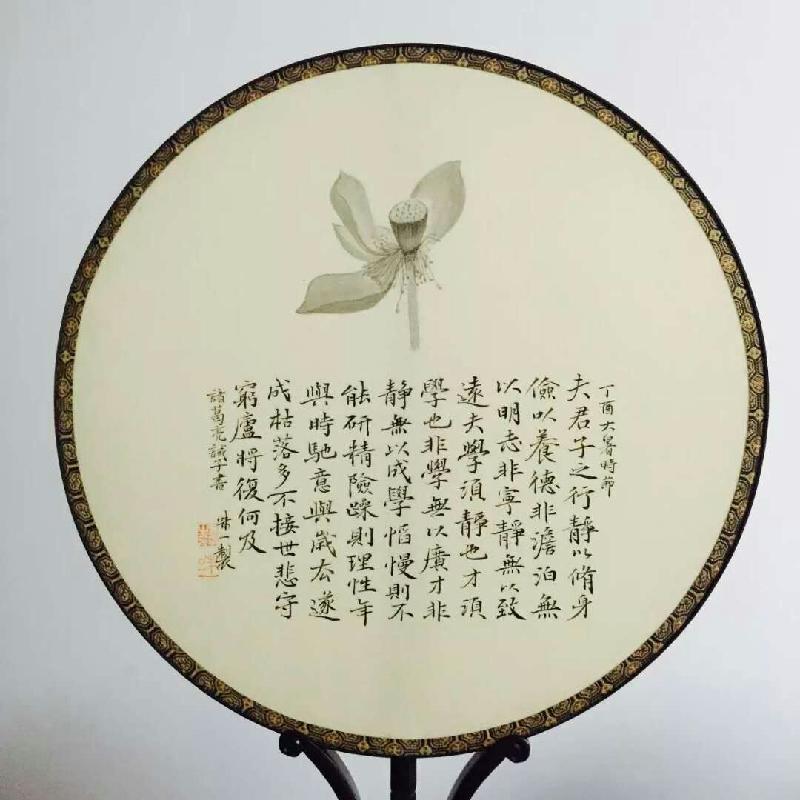 丁酉大暑時節
夫君子之行靜以脩身
儉以養德非澹泊無
以明志非寧靜無以致
遠夫學須靜也才須
學也非學無以廣才非
靜無以成學慆慢則不
能研精險躁則理性年
與時馳意與歲去遂
成枯落多不接世悲守
窮廬將復何及
諸葛亮誡子書
一製